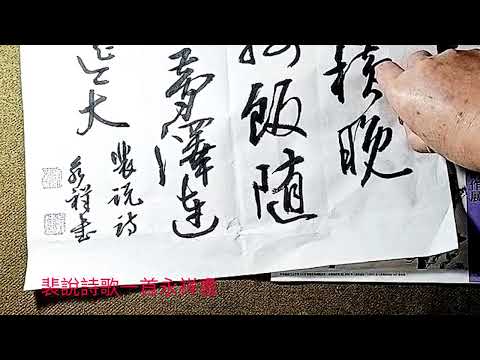 晚
飯隨
夢澤連
大
裴説詩
永祥書
裴說詩歌一首永祥書